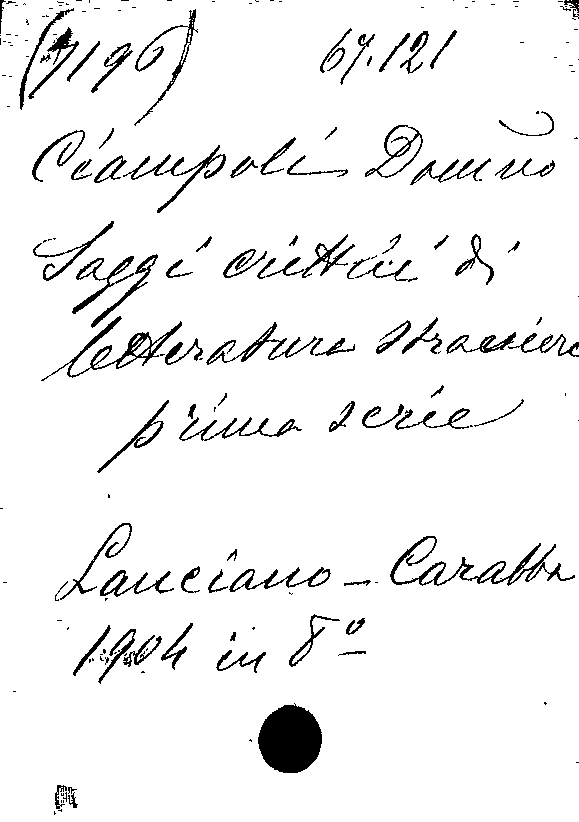 (7196) 67.121
Ciampoli Domco
Saggi critici di
letteratura straniera
prima serie
Lanciano - Carabba
1904 in 8º